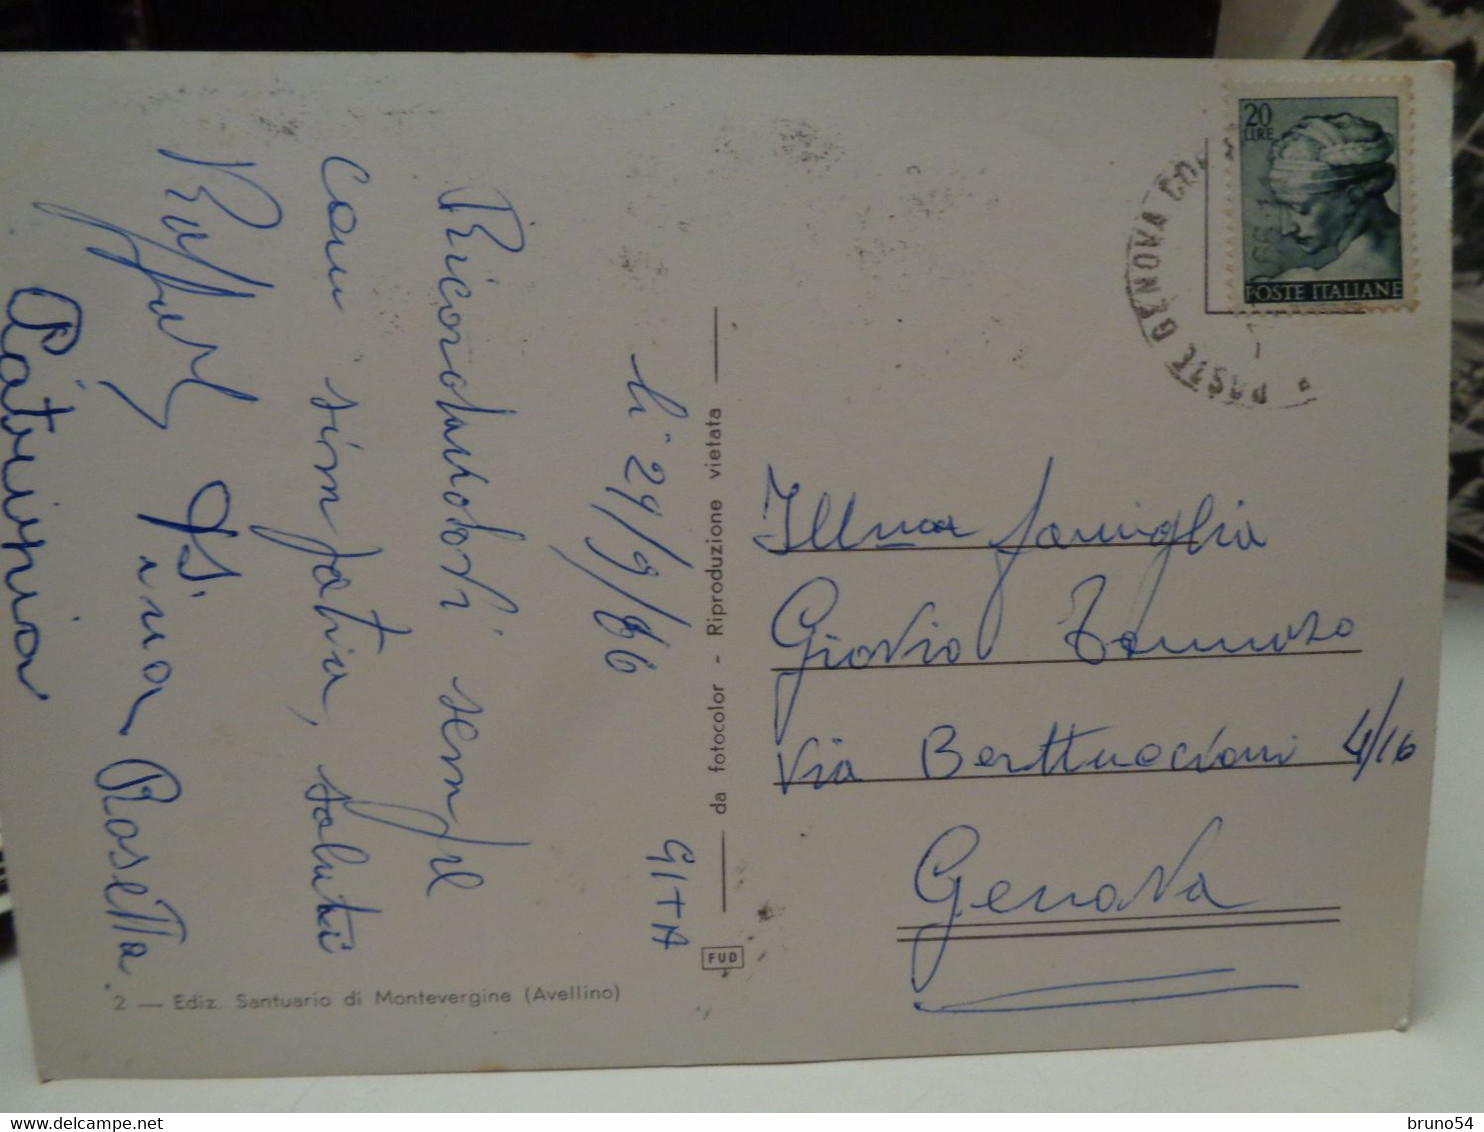 li 29/9/66
GITA
Ricordandovi sempre
con simpatia, saluti
Gina Rosetta
Caterina
2 — Ediz. Santuario di Montevergine (Avellino)
da fotocolor - Riproduzione vietata
FUD
20
LIRE
POSTE ITALIANE
POSTE GENOVA
Ill.ma famiglia
Giovio Tommaso
Via Berttuccioni 4/16
Genova
bruno54